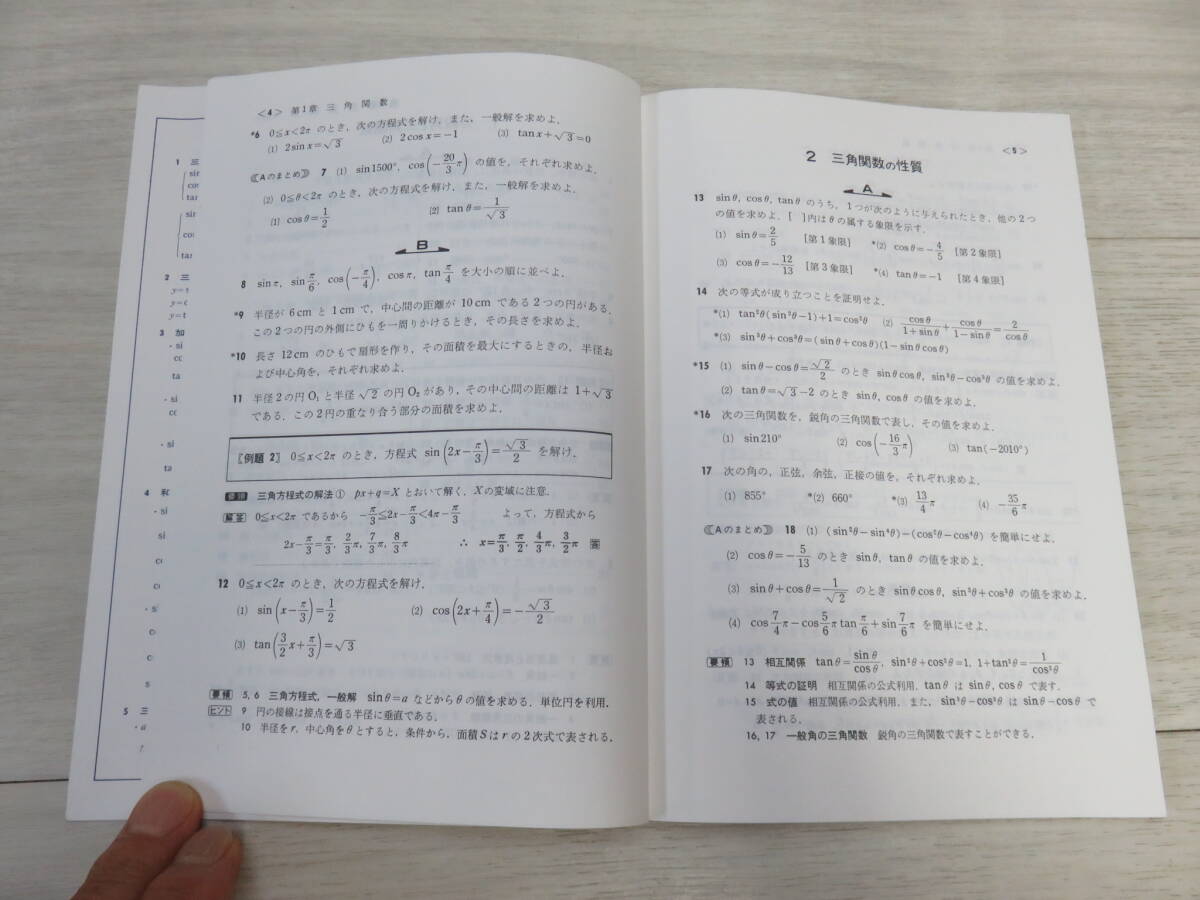 <4> 第1章 三角関数
*6 0≦x<2π のとき，次の方程式を解け．また，一般解を求めよ．
(1) 2sin x=√3 (2) 2cos x=−1 (3) tan x+√3=0
《Aのまとめ》 7 (1) sin1500°, cos(−20/3 π) の値を，それぞれ求めよ．
(2) 0≦θ<2π のとき，次の方程式を解け．また，一般解を求めよ．
(1) cosθ=1/2 (2) tanθ=1/√3
B
8 sinπ, sin π/6, cos(−π/4), cosπ, tan π/4 を大小の順に並べよ．
*9 半径が 6cm と 1cm で，中心間の距離が 10cm である2つの円がある．
この2つの円の外側にひもを一周りかけるとき，その長さを求めよ．
*10 長さ 12cm のひもで扇形を作り，その面積を最大にするときの，半径お
よび中心角を，それぞれ求めよ．
11 半径2の円O₁と半径√2の円O₂があり，その中心間の距離は 1+√3
である．この2円の重なり合う部分の面積を求めよ．
〔例題 2〕 0≦x<2π のとき，方程式 sin(2x−π/3)=√3/2 を解け．
要領 三角方程式の解法① px+q=X とおいて解く，Xの変域に注意．
解答 0≦x<2π であるから −π/3≦2x−π/3<4π−π/3 よって，方程式から
2x−π/3=π/3, 2/3 π, 7/3 π, 8/3 π ∴ x=π/3, π/2, 4/3 π, 3/2 π 答
12 0≦x<2π のとき，次の方程式を解け．
(1) sin(x−π/3)=1/2 (2) cos(2x+π/4)=−√3/2
(3) tan(3/2 x+π/3)=√3
要領 5, 6 三角方程式，一般解 sinθ=a などからθの値を求める．単位円を利用．
ヒント 9 円の接線は接点を通る半径に垂直である．
10 半径をr，中心角をθとすると，条件から，面積Sはrの2次式で表される．
<5>
2 三角関数の性質
A
13 sinθ, cosθ, tanθ のうち，1つが次のように与えられたとき，他の2つ
の値を求めよ．[ ]内はθの属する象限を示す．
(1) sinθ=2/5 [第1象限] *(2) cosθ=−4/5 [第2象限]
(3) cosθ=−12/13 [第3象限] *(4) tanθ=−1 [第4象限]
14 次の等式が成り立つことを証明せよ．
*(1) tan²θ(sin²θ−1)+1=cos²θ (2) cosθ/(1+sinθ)+cosθ/(1−sinθ)=2/cosθ
*(3) sin³θ+cos³θ=(sinθ+cosθ)(1−sinθcosθ)
*15 (1) sinθ−cosθ=√2/2 のとき sinθcosθ, sin³θ−cos³θ の値を求めよ．
(2) tanθ=√3−2 のとき sinθ, cosθ の値を求めよ．
*16 次の三角関数を，鋭角の三角関数で表し，その値を求めよ．
(1) sin210° (2) cos(−16/3 π) (3) tan(−2010°)
17 次の角の，正弦，余弦，正接の値を，それぞれ求めよ．
(1) 855° *(2) 660° *(3) 13/4 π (4) −35/6 π
《Aのまとめ》 18 (1) (sin²θ−sin⁴θ)−(cos²θ−cos⁴θ) を簡単にせよ．
(2) cosθ=−5/13 のとき sinθ, tanθ の値を求めよ．
(3) sinθ+cosθ=1/√2 のとき sinθcosθ, sin³θ+cos³θ の値を求めよ．
(4) cos 7/4 π−cos 5/6 π tan π/6+sin 7/6 π を簡単にせよ．
要領 13 相互関係 tanθ=sinθ/cosθ, sin²θ+cos²θ=1, 1+tan²θ=1/cos²θ
14 等式の証明 相互関係の公式利用．tanθ は sinθ, cosθ で表す．
15 式の値 相互関係の公式利用．また，sin³θ−cos³θ は sinθ−cosθ で
表される．
16, 17 一般角の三角関数 鋭角の三角関数で表すことができる．
1 三
sin
cos
tan
sin
cos
tan
2 三
y=
y=
y=t
3 加
・si
co
ta
・si
co
・si
ta
4 和
・si
si
co
co
・s
c
s
5 三